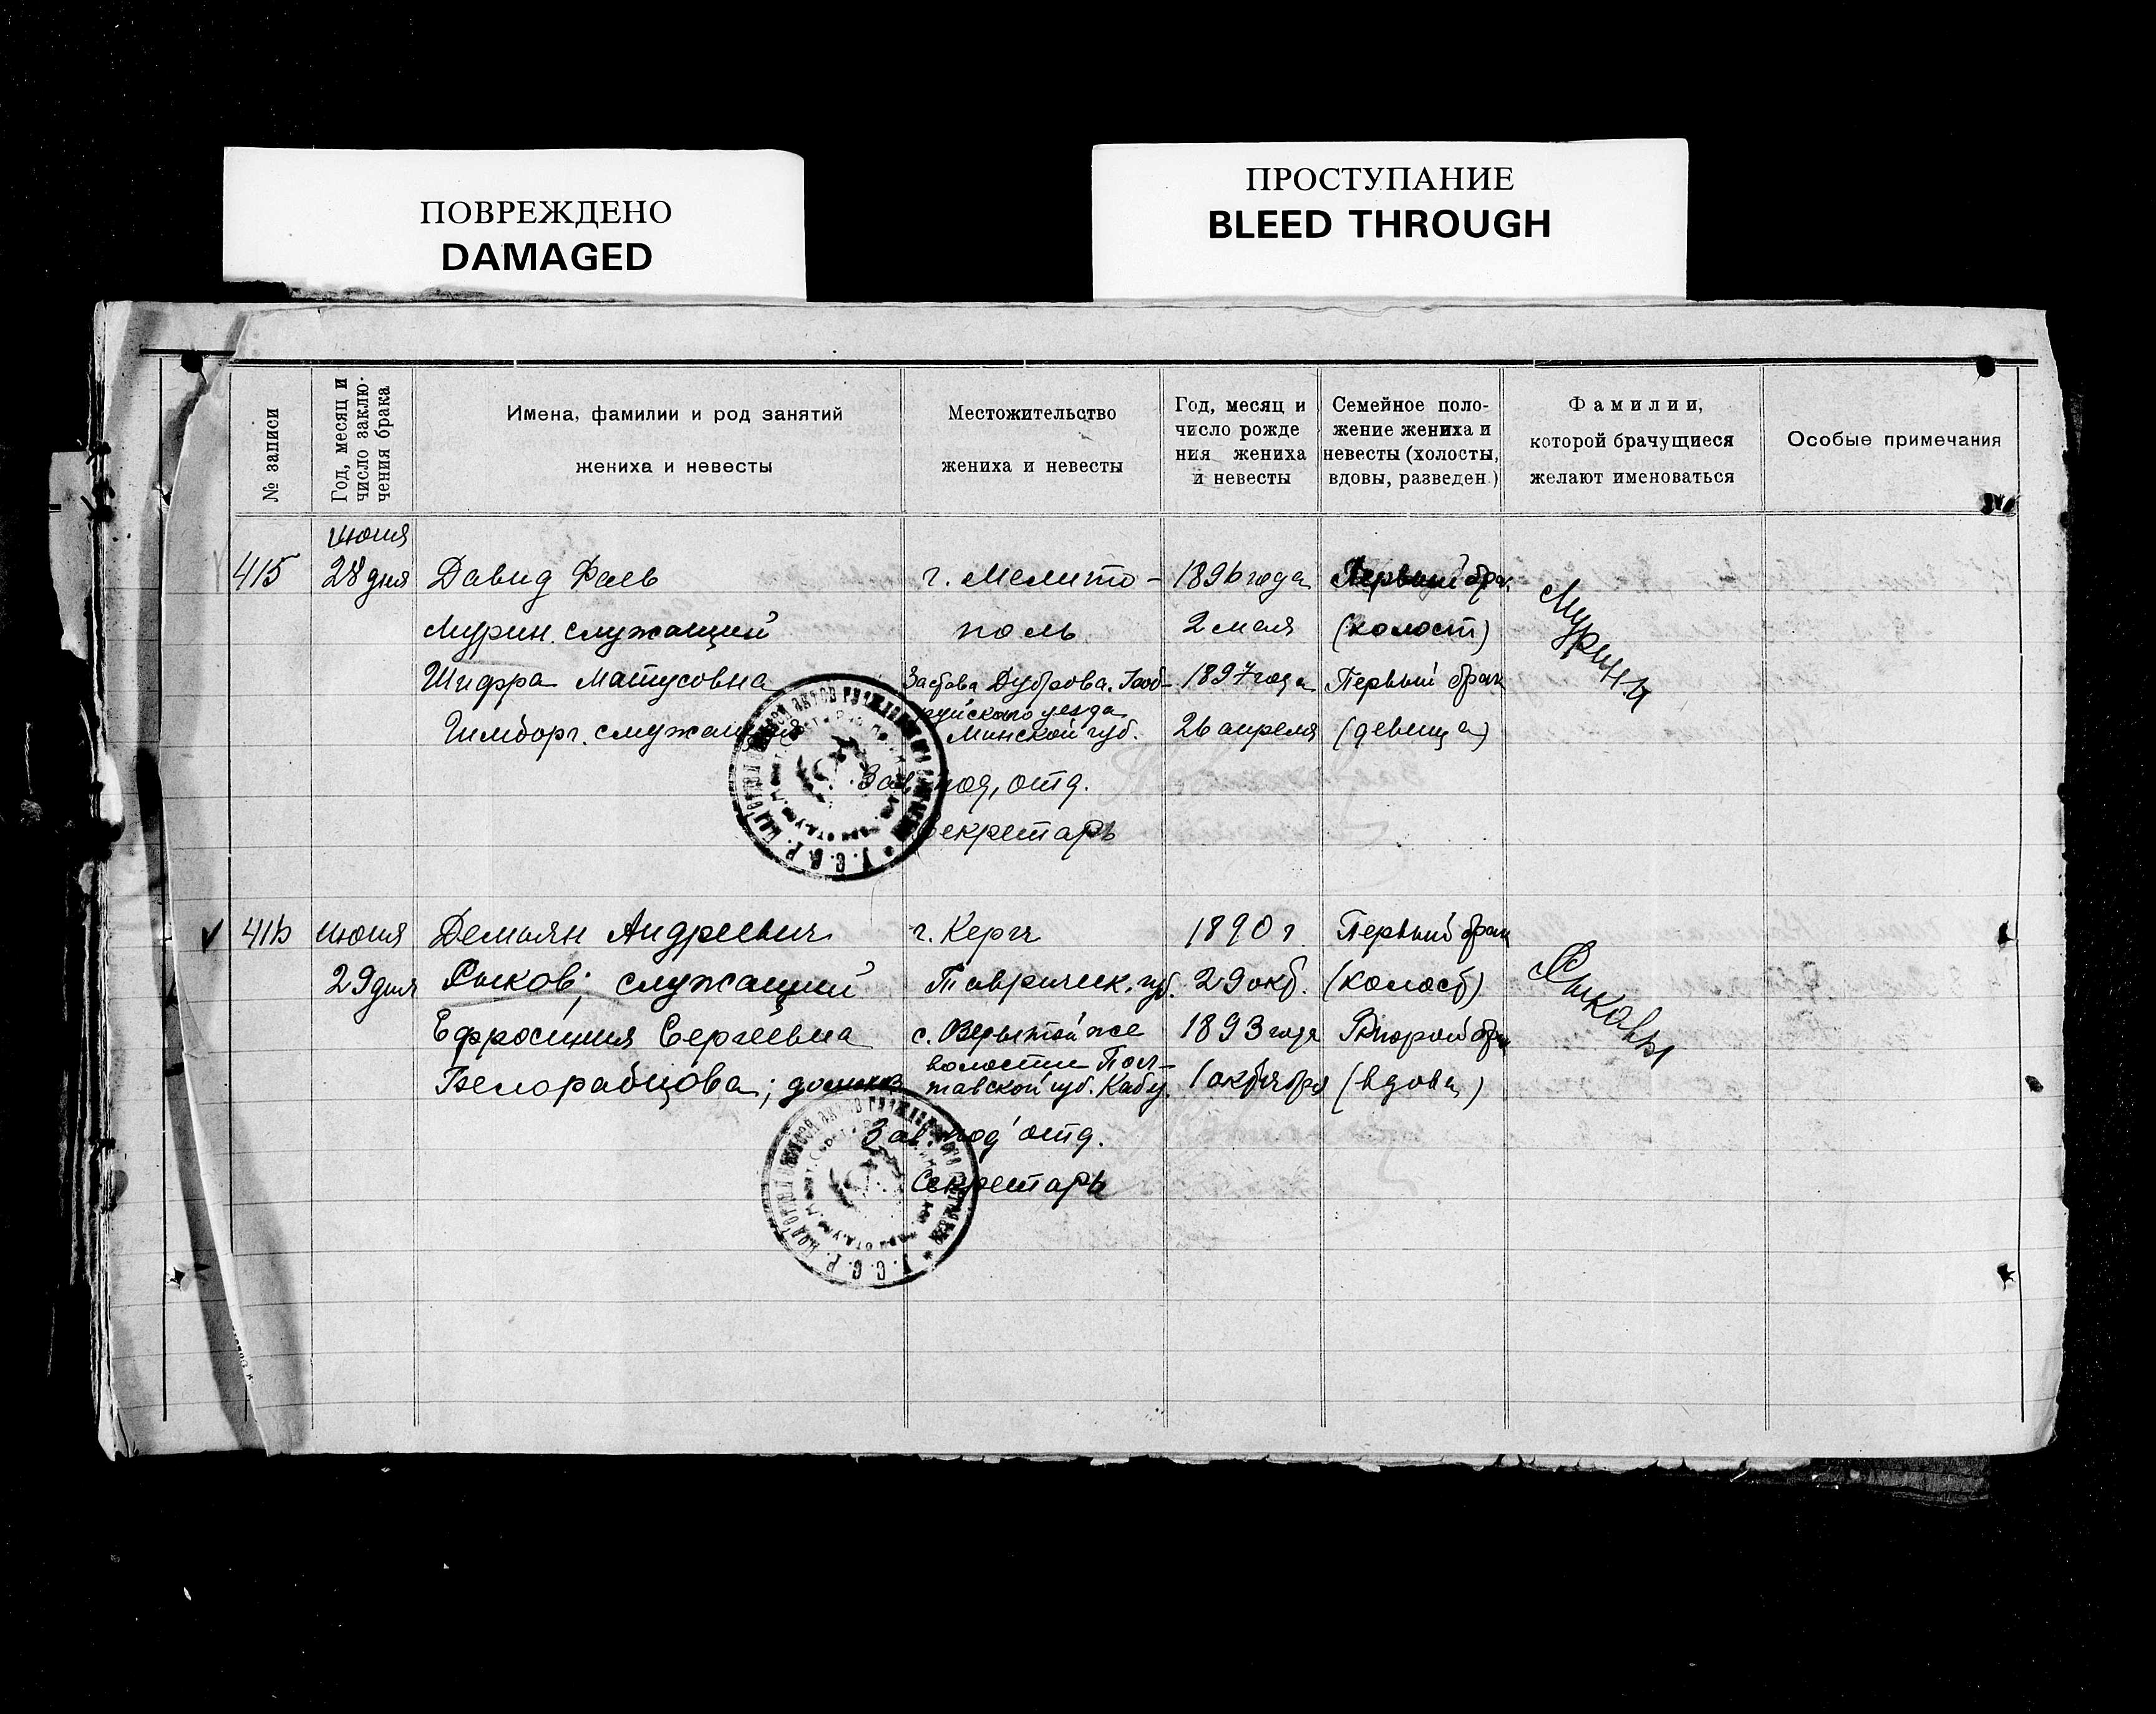 ПОВРЕЖДЕНО
DAMAGED
ПРОСТУПАНИЕ
BLEED THROUGH
№ записи
Год, месяц и
число заклю-
чения брака
Имена, фамилии и род занятий
жениха и невесты
Местожительство
жениха и невесты
Год, месяц и
число рожде
ния жениха
и невесты
Семейное поло-
жение жениха и
невесты (холосты,
вдовы, разведен.)
Фамилии,
которой брачущиеся
желают именоваться
Особые примечания
июня
415 28 дня Давид Фаев г. Мелито- 1896 года Первый брак
Мурин. служащий поль 2 мая (холост)
Мурины
Шифра Матусовна Дуброва. 1897 года Первый брак
уезда
служащая Минской губ. 26 апреля (девица)
Зав. под, отд.
Секретарь
416 июня Демьян Андреевич г. Керчь 1890 г. Первый брак
29 дня Рыков; служащий Тавричиск. губ. 29 окт. (холост)
Рыковы
Ефросиния Сергеевна с. 1893 года Второй брак
волости Пол-
Белорабцова; тавской губ. 1 октября (вдова)
Зав. под' отд.
Секретарь
У. С. С. Р.